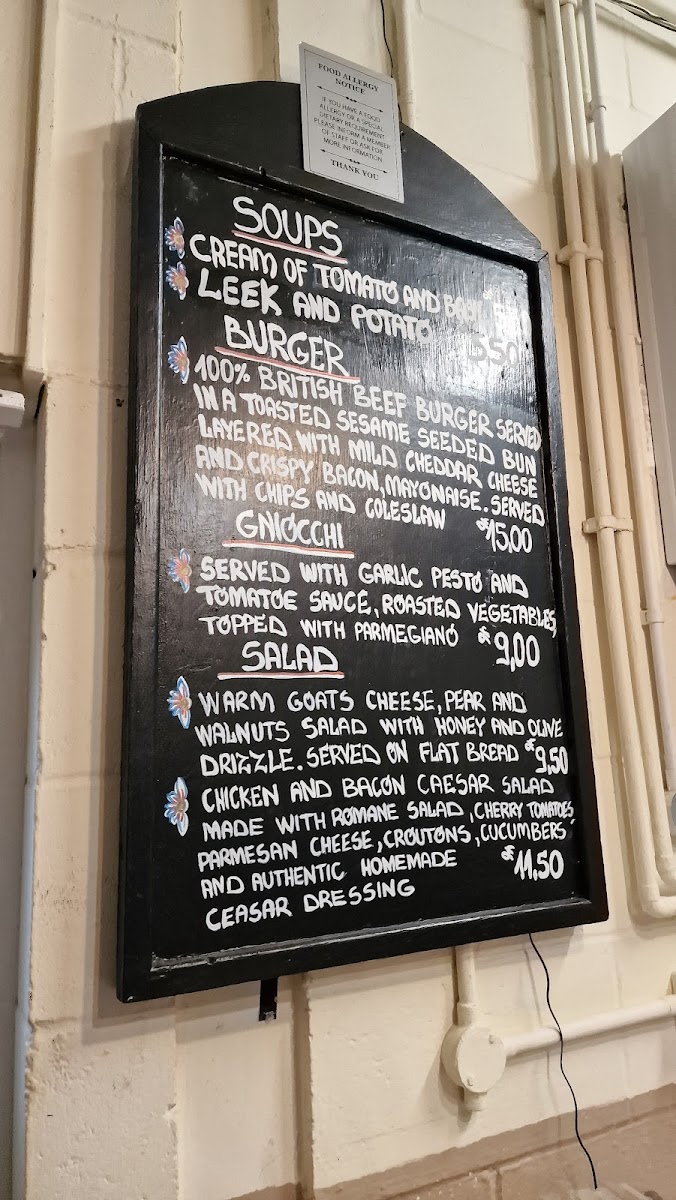 FOOD ALLERGY
NOTICE
IF YOU HAVE A FOOD
ALLERGY OR A SPECIAL
DIETARY REQUIREMENT
PLEASE INFORM A MEMBER
OF STAFF OR ASK FOR
MORE INFORMATION
THANK YOU
SOUPS
CREAM OF TOMATO AND BASIL
LEEK AND POTATO 5,50
BURGER
100% BRITISH BEEF BURGER SERVED
IN A TOASTED SESAME SEEDED BUN
LAYERED WITH MILD CHEDDAR CHEESE
AND CRISPY BACON, MAYONAISE. SERVED
WITH CHIPS AND COLESLAW £15,00
GNIOCCHI
SERVED WITH GARLIC PESTO AND
TOMATOE SAUCE, ROASTED VEGETABLES,
TOPPED WITH PARMEGIANO £9,00
SALAD
WARM GOATS CHEESE, PEAR AND
WALNUTS SALAD WITH HONEY AND OLIVE
DRIZZLE. SERVED ON FLAT BREAD £9,50
CHICKEN AND BACON CAESAR SALAD
MADE WITH ROMANE SALAD, CHERRY TOMATOES
PARMESAN CHEESE, CROUTONS, CUCUMBERS
AND AUTHENTIC HOMEMADE £11,50
CEASAR DRESSING